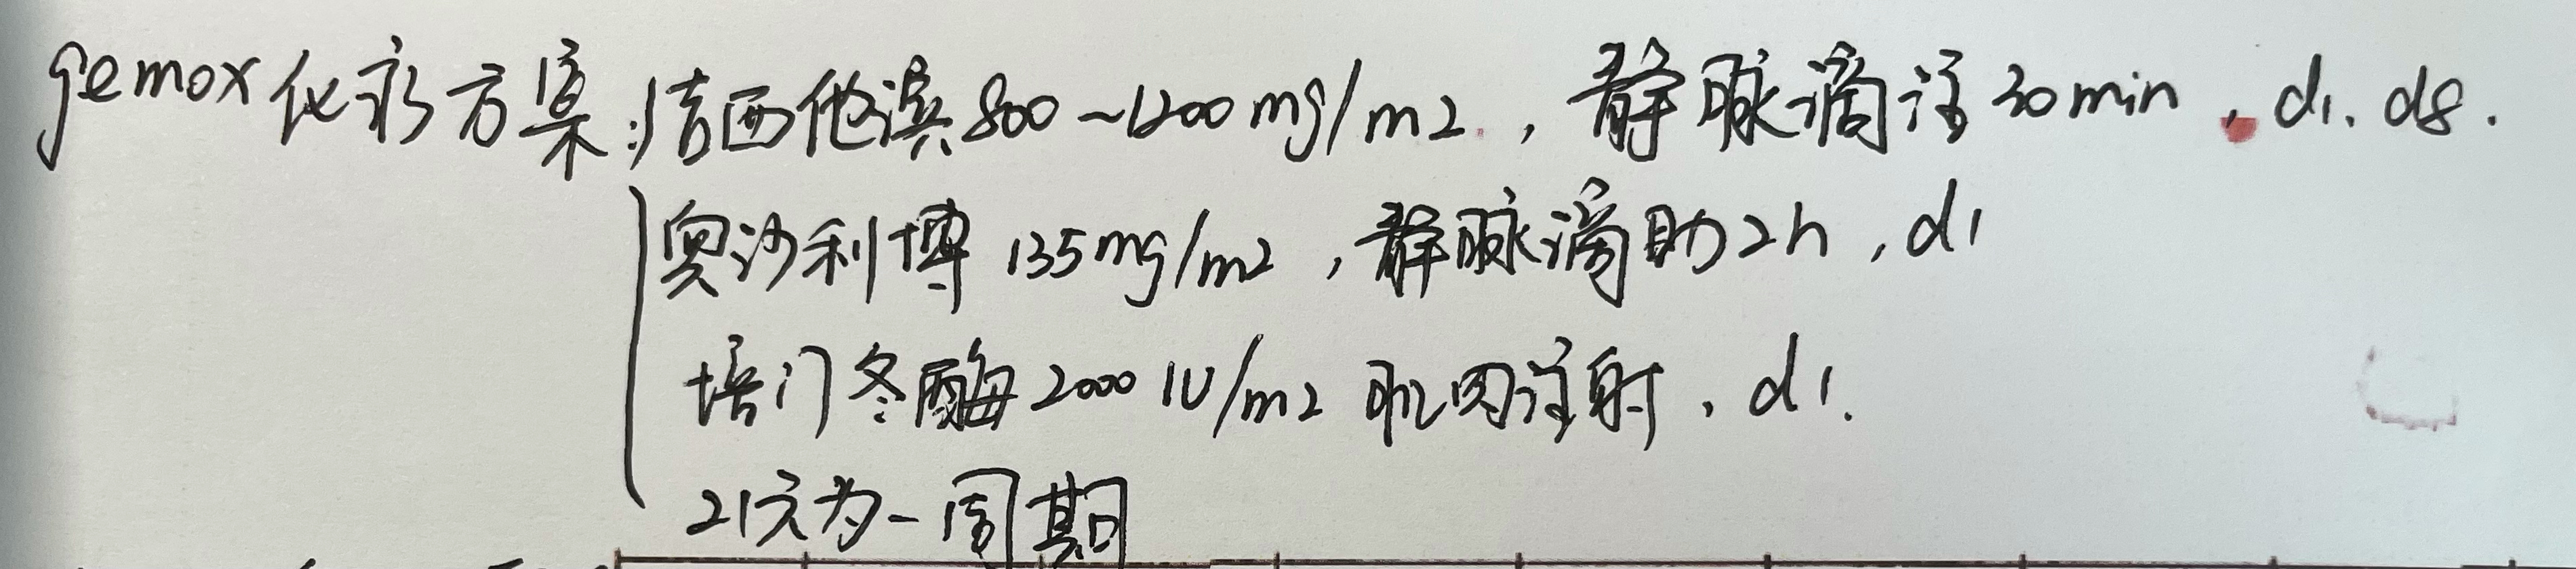 gemox化疗方案:吉西他滨800~1200mg/m2.,静脉滴注30min,d1、d8.
奥沙利博 135mg/m2,静脉滴助2h,d1
培门冬酶2000IU/m2 肌肉注射、d1.
21天为一周期